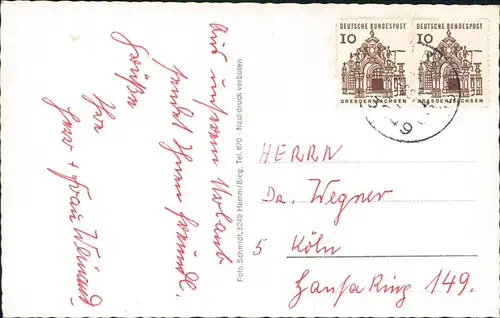 Aus unserem Urlaub
sendet Ihnen freundl.
Grüße
Ihre
Herr + Frau Weinand
Foto Schmidt, 5249 Hamm/Sieg, Tel. 670 - Nachdruck verboten
DEUTSCHE BUNDESPOST
10
DRESDEN/SACHSEN
DEUTSCHE BUNDESPOST
10
DRESDEN/SACHSEN
HERRN
Dr. Wegner
5 Köln
Hansa Ring 149.